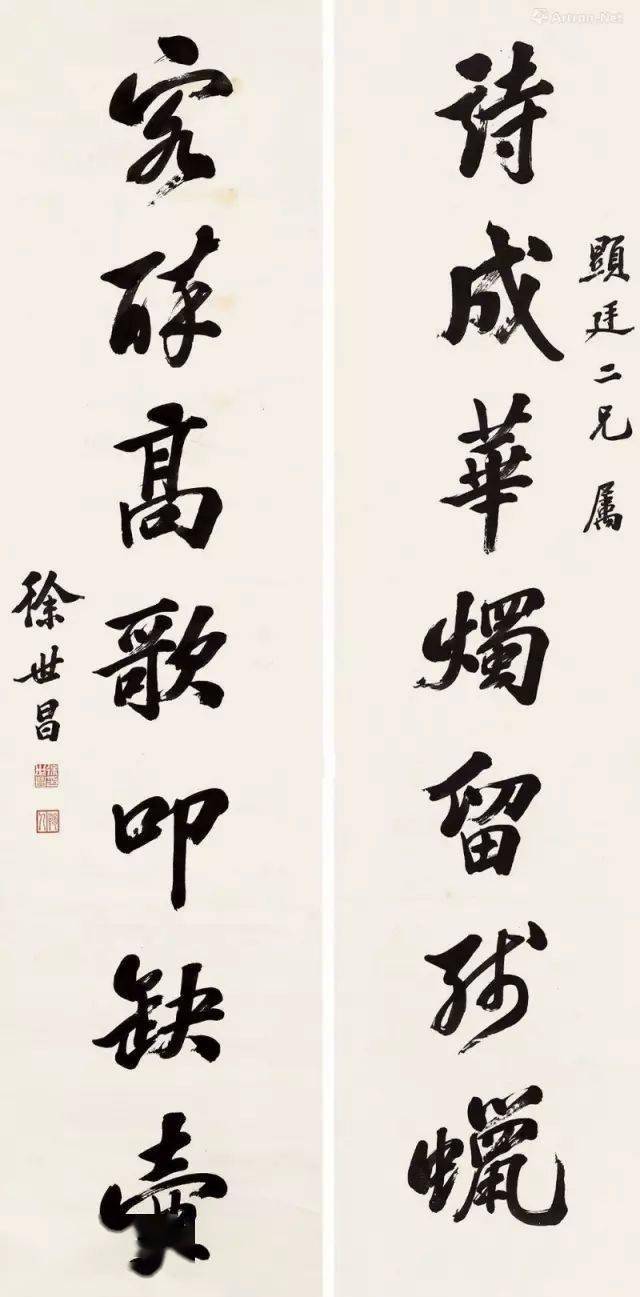 顯廷二兄屬
詩成華燭留殘蠟
客醉高歌叩缺壺
徐世昌
Artron.Net